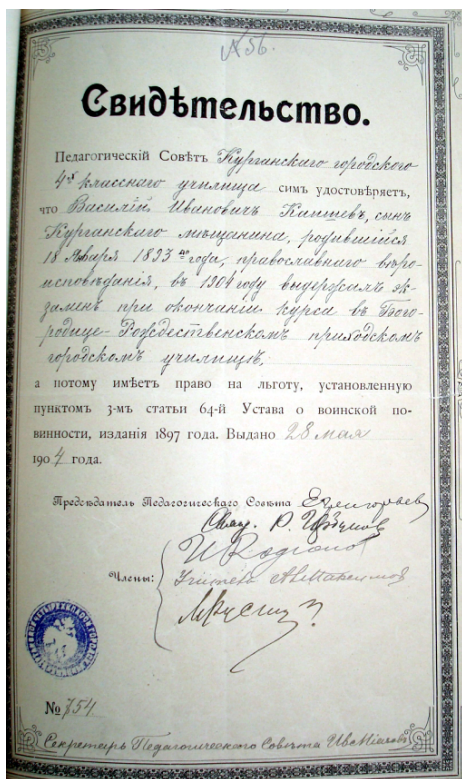 № 56.
Свидѣтельство.
Педагогическій Совѣтъ Курганскаго городского
4х классного училища симъ удостовѣряетъ,
что Василій Ивановичъ сынъ
Курганскаго мѣщанина, родившійся
18 Января 1893го года, православнаго вѣро-
исповѣданія, въ 1904 году выдержалъ эк-
заменъ при окончаніи курса въ Бого-
родице-Рождественскомъ приходскомъ
городскомъ училищѣ,
а потому имѣетъ право на льготу, установленную
пунктомъ 3-мъ статьи 64-й Устава о воинской по-
винности, изданія 1897 года. Выдано 28 мая
1904 года.
Предсѣдатель Педагогическаго Совѣта
Члены:
№ 754
Секретарь Педагогическаго Совѣта